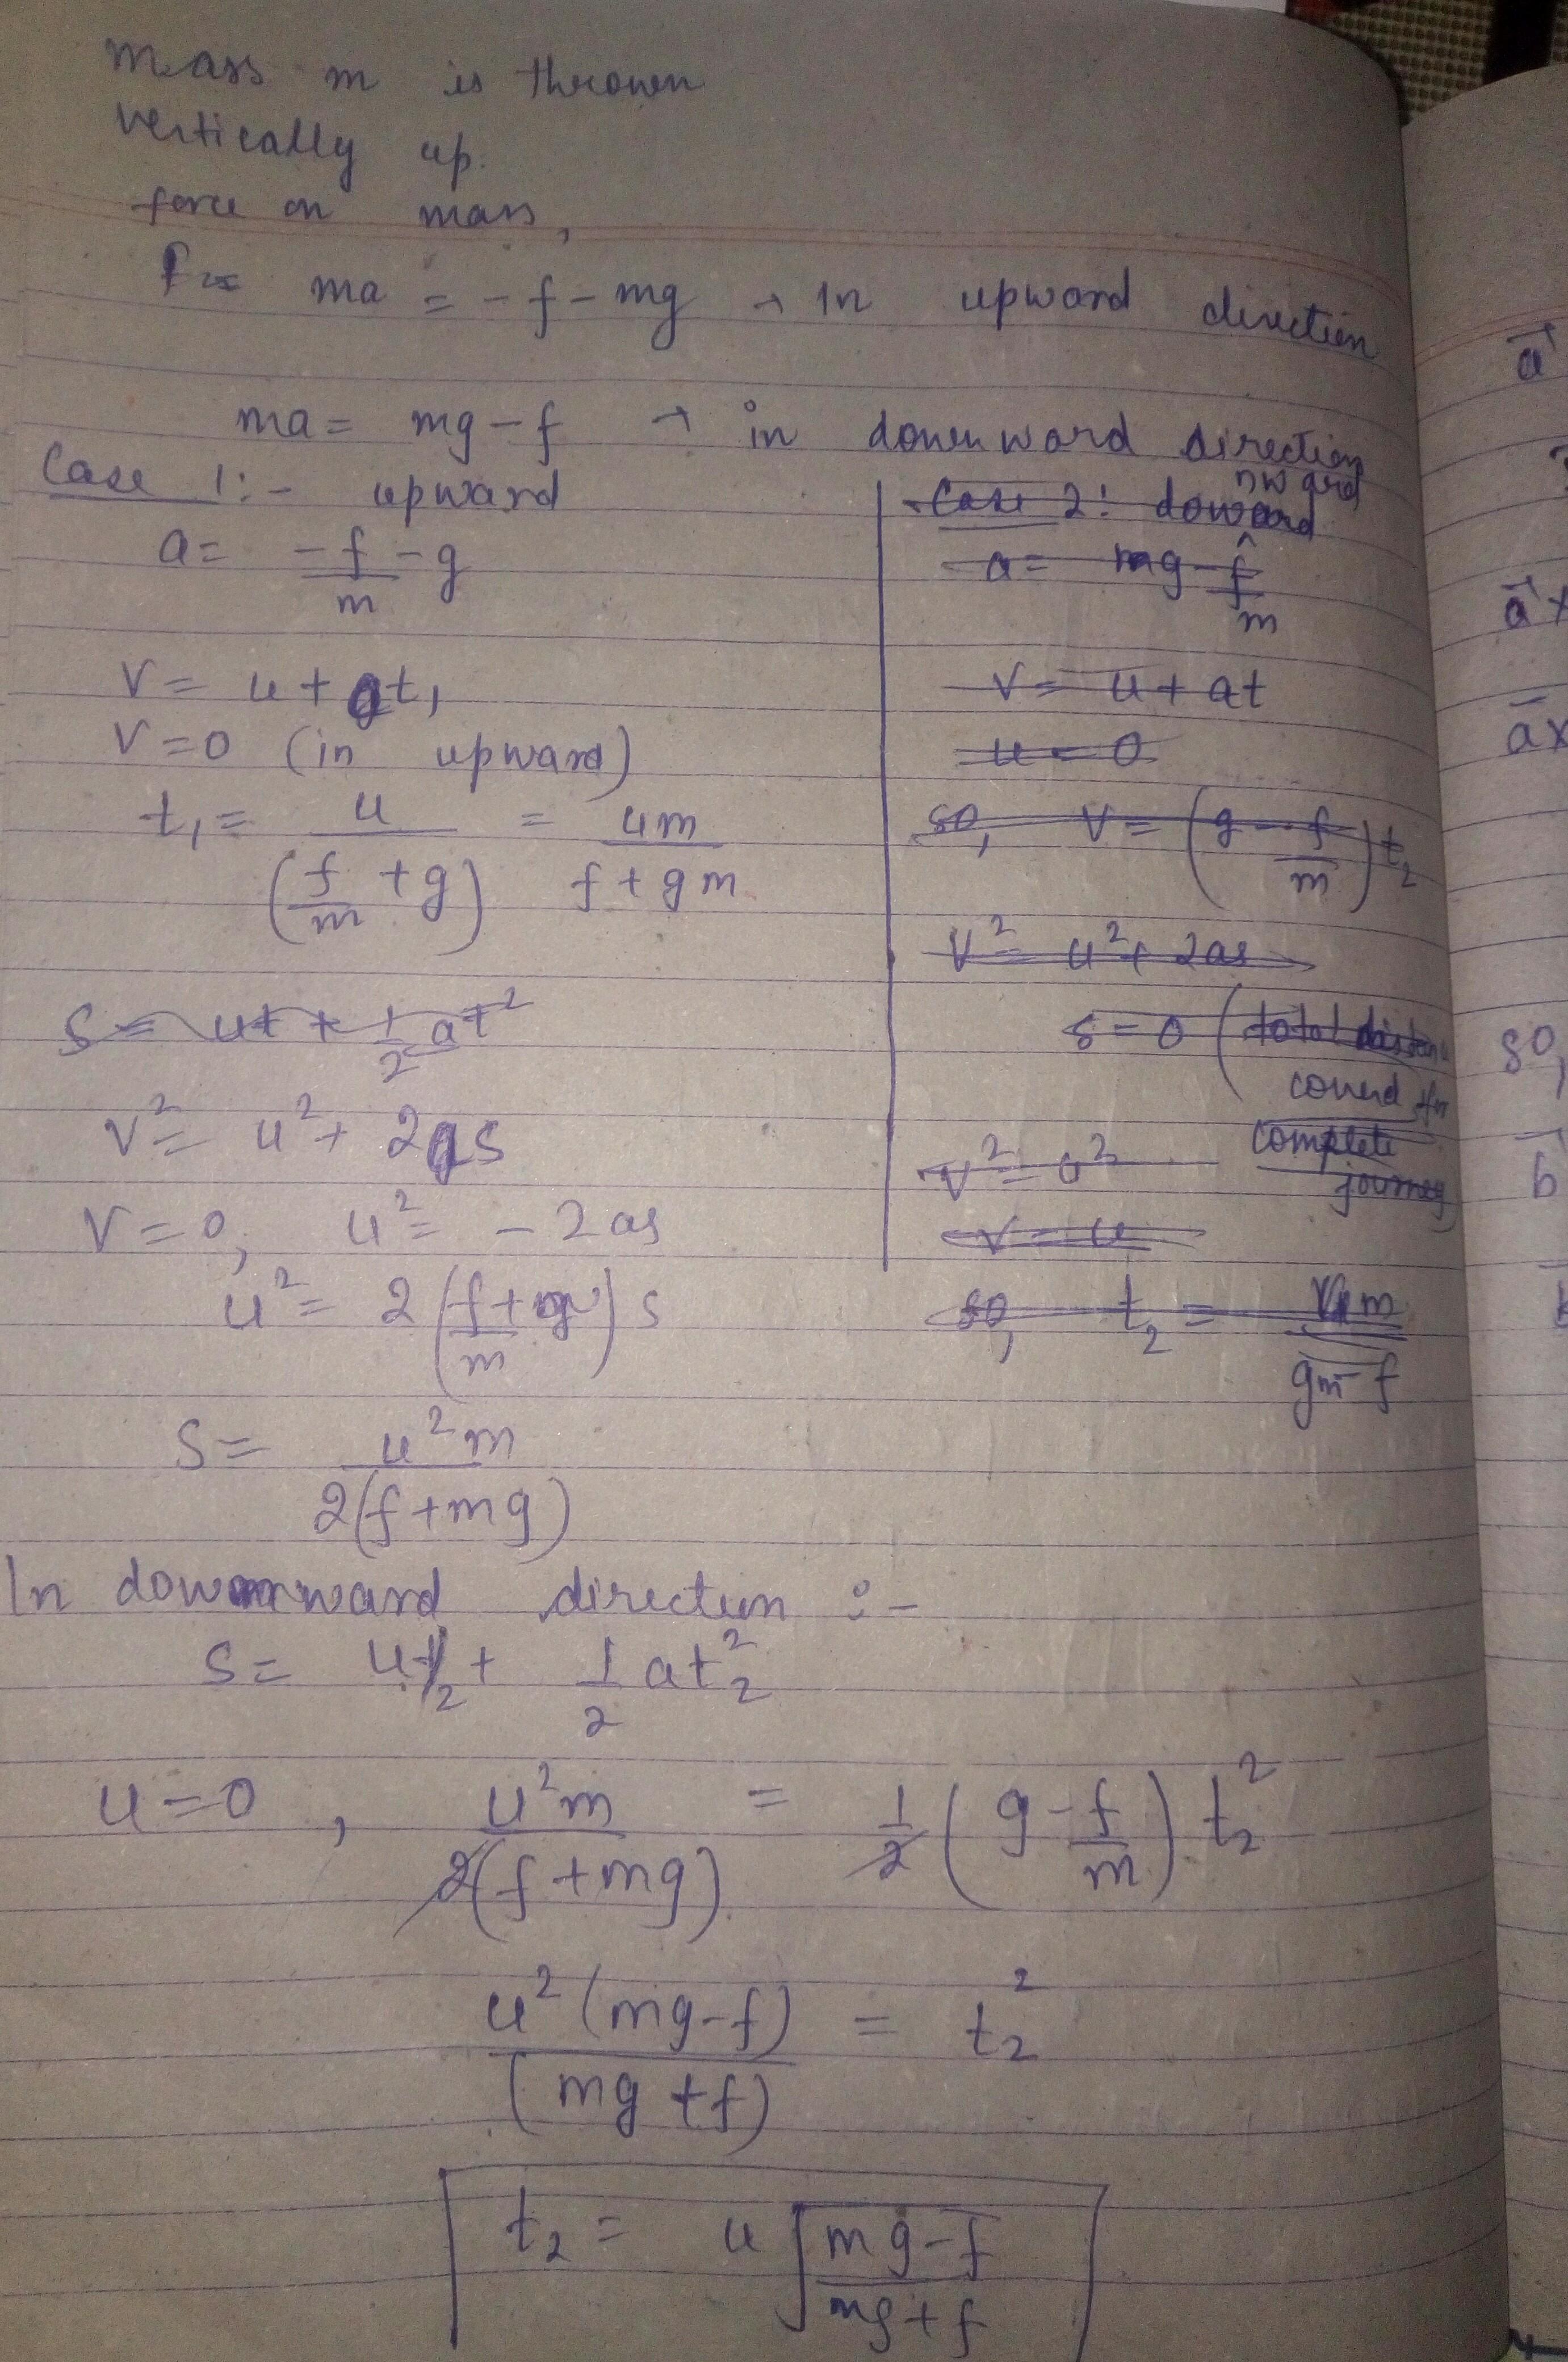 mass m is thrown
vertically up.
force on mass,
F = ma = -f - mg → in upward direction
ma = mg - f → in downward direction
Case 1:- upward
a = -f/m - g
v = u + at₁
v = 0 (in upward)
t₁ = u/(f/m + g) = um/(f + gm)
s = ut + 1/2 at²
v² = u² + 2as
v = 0, u² = -2as
u² = 2(f/m + g)s
s = u²m/2(f + mg)
Case 2: downward
a = mg - f/m
v = u + at
u = 0
so, v = (g - f/m)t₂
v² = u² + 2as
s = 0 (total distance
coverd for
complete
journey)
v² = u²
v = u
so, t₂ = um/(gm - f)
In downward direction :-
s = ut₂ + 1/2 at₂²
u = 0, u²m/2(f + mg) = 1/2 (g - f/m) t₂²
u²(mg - f)/(mg + f) = t₂²
t₂ = u√((mg - f)/(mg + f))
a⃗
a⃗ ×
a⃗ ×
so,
b⃗